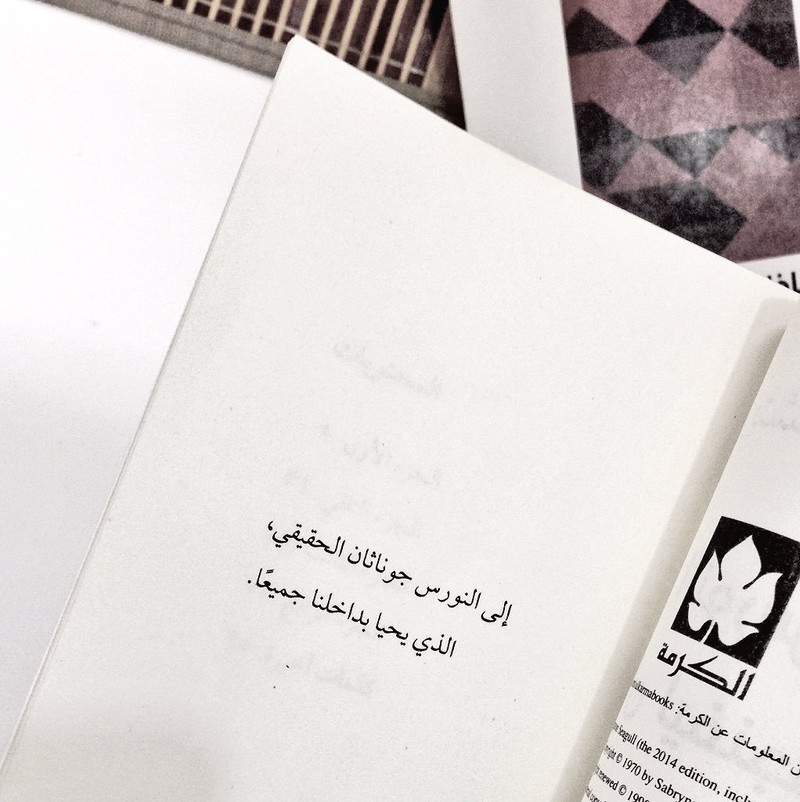 إلى النورس جوناثان الحقيقي،
الذي يحيا بداخلنا جميعًا.
الكرمة
المعلومات عن الكرمة: karmabooks
seagull (the 2014 edition, incl
© 1970 by Sabryn
renewed © 1998